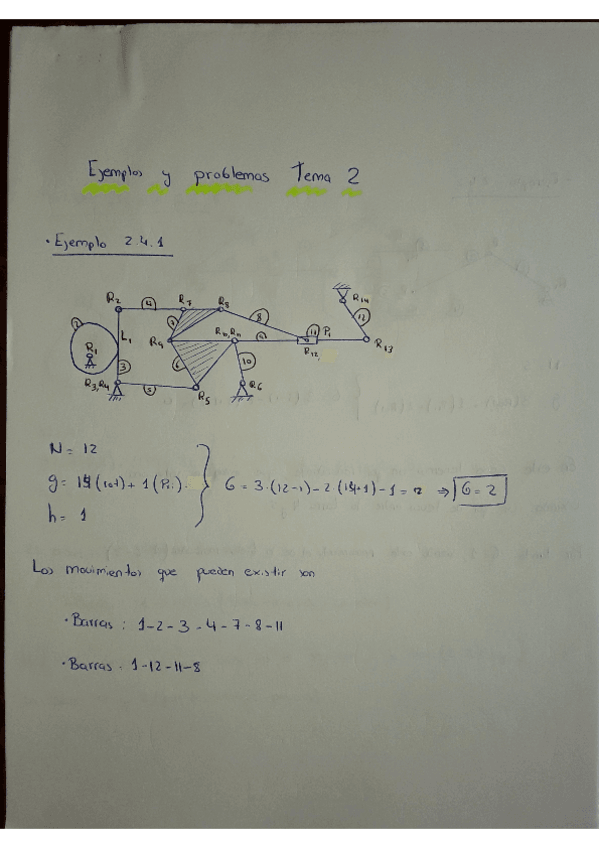 Ejemplos y problemas Tema 2
· Ejemplo 2.4.1
R2 4 R7 R8 8 11 P1 R14
2 R1 L1 7 R9 R10,R11 9 R12 12 R13
3 6 10
R3,R4 5 R5 R6
N = 12
g = 14 (rot) + 1 (Pri).
h = 1
G = 3·(12-1)-2·(14+1)-1 = 2 ⇒ G = 2
Los movimientos que pueden existir son
· Barras : 1-2-3-4-7-8-11
· Barras · 1-12-11-8